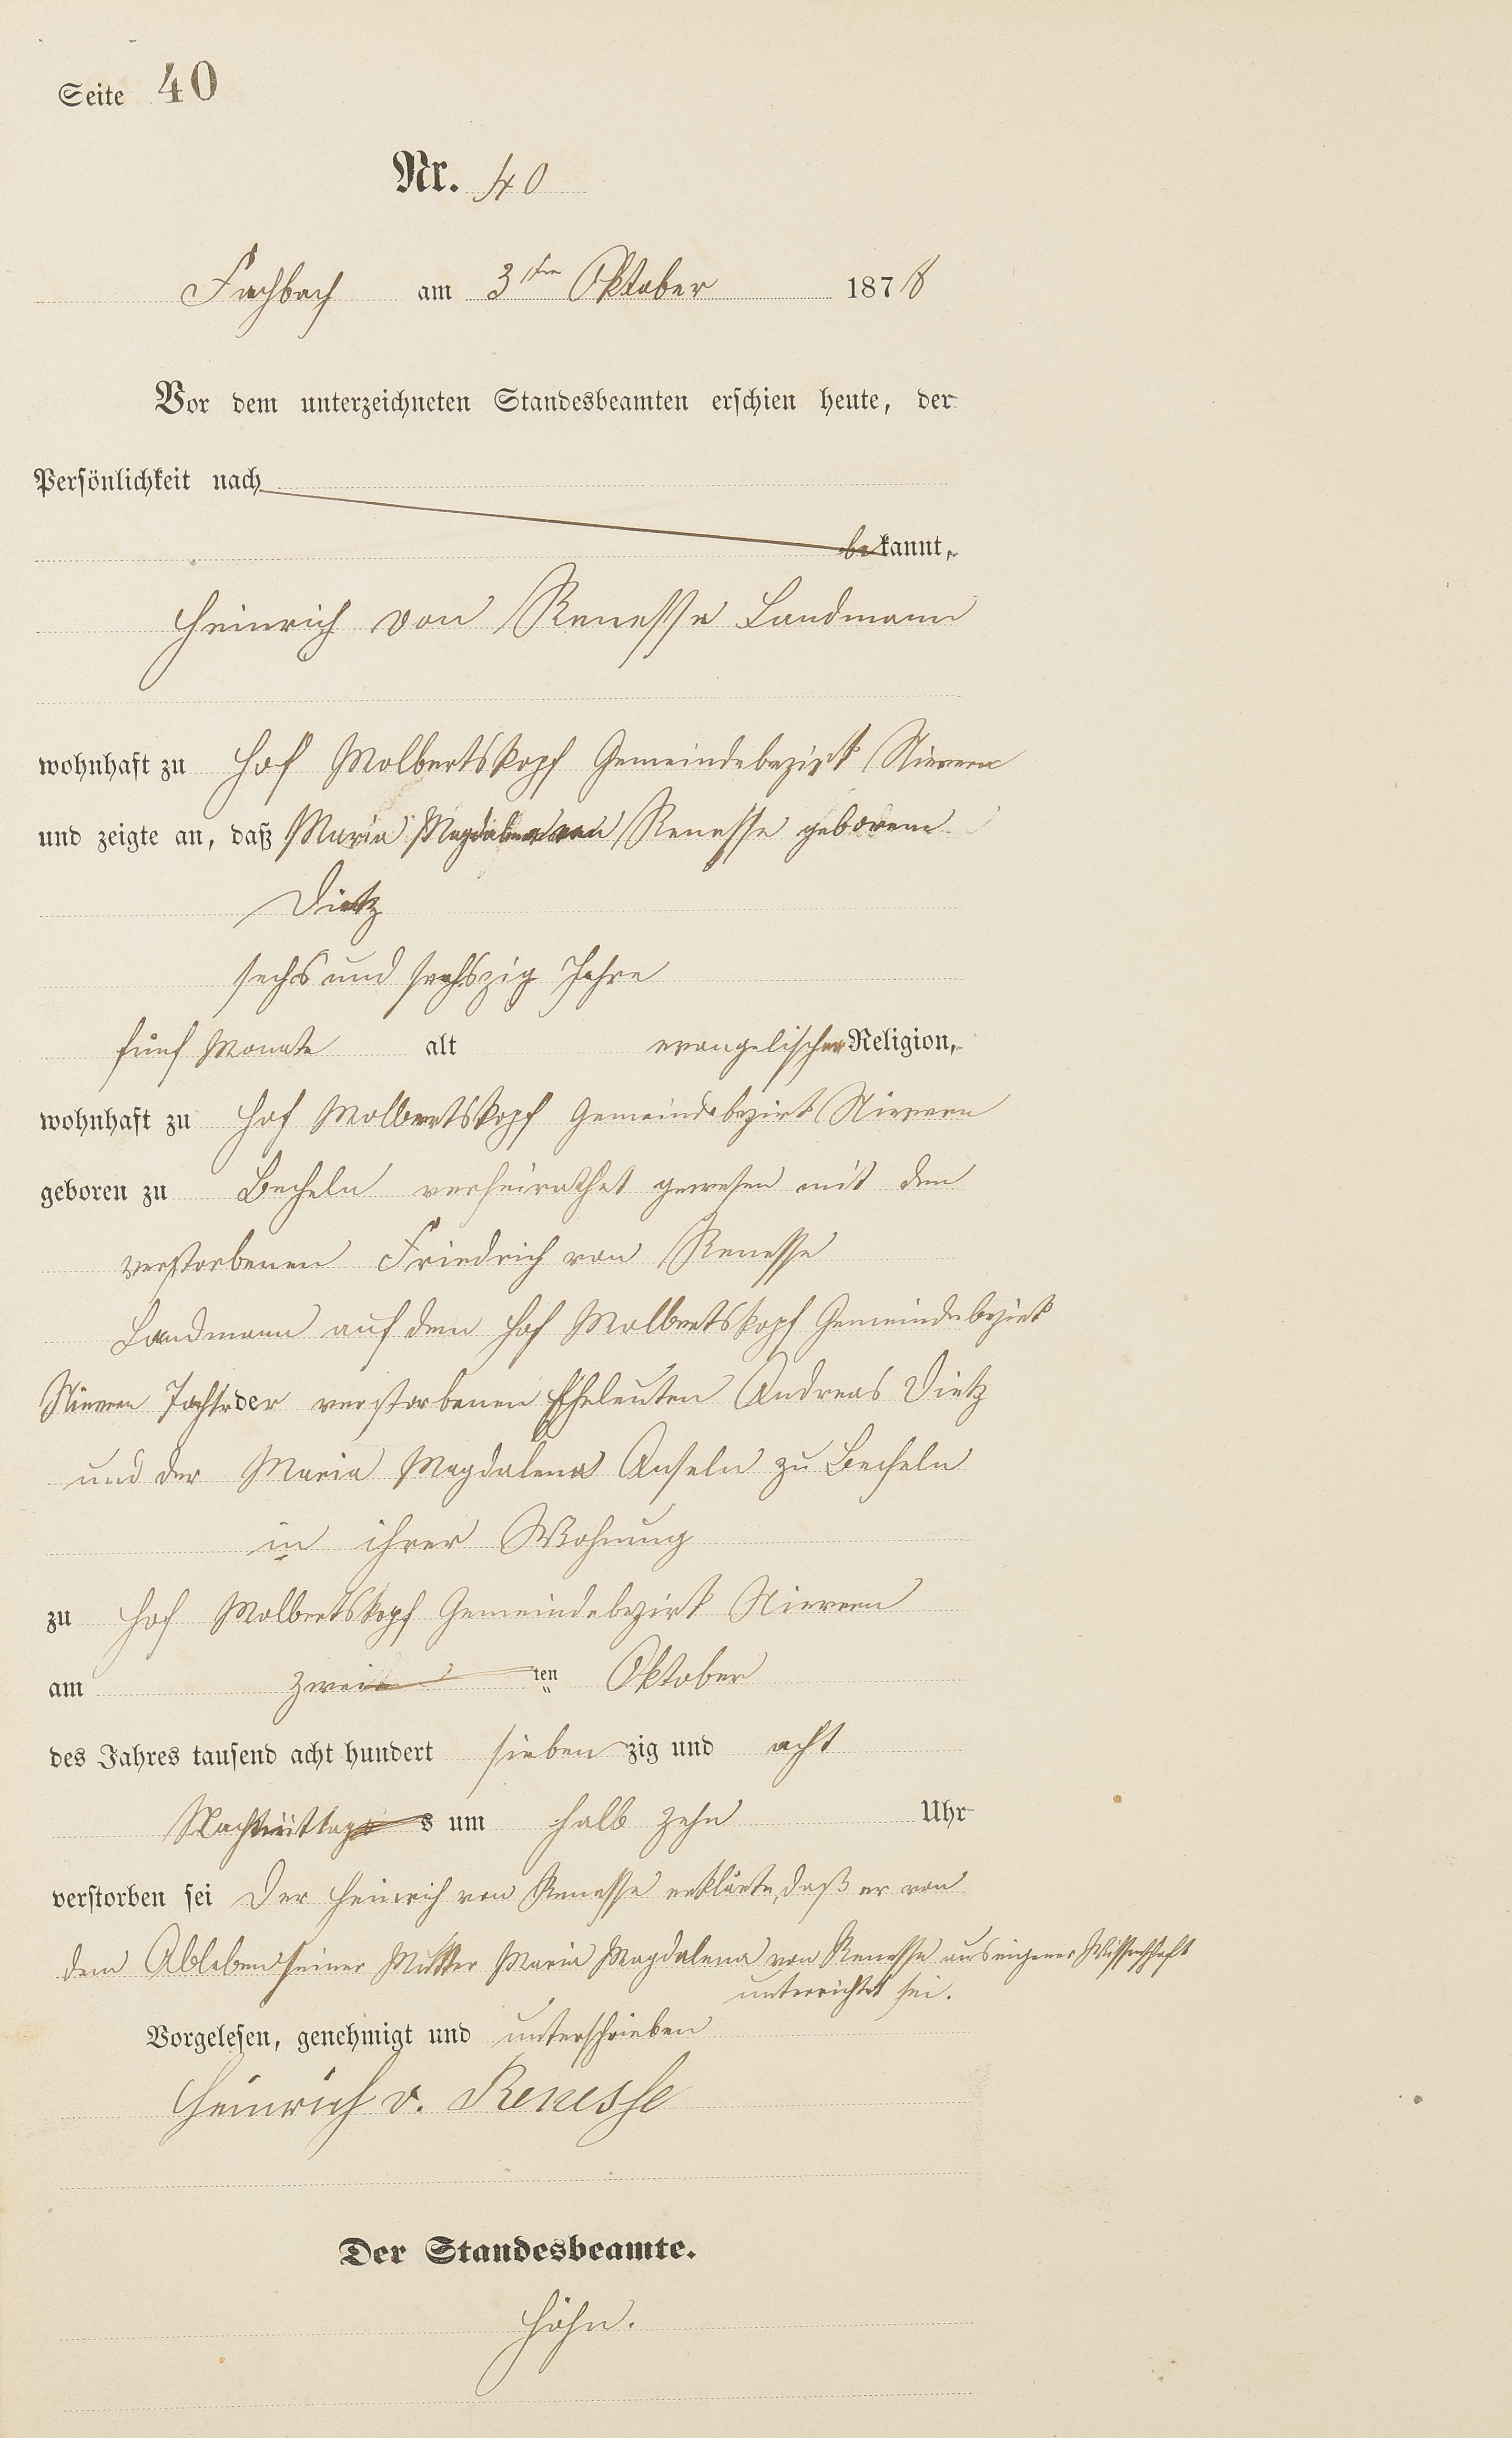 Seite 40
Nr. 40
Fachbach am 3ten Oktober 1878
Vor dem unterzeichneten Standesbeamten erschien heute, der
Persönlichkeit nach
bekannt,
Heinrich von Renesse Landmann
wohnhaft zu Hof Molbertskopf Gemeindebezirk Nievern
und zeigte an, daß Maria Magdalena von Renesse geborene
Dietz
sechs und sechszig Jahre
fünf Monate alt evangelischer Religion,
wohnhaft zu Hof Molbertskopf Gemeindebezirk Nievern
geboren zu Becheln verheirathet gewesen mit dem
verstorbenen Friedrich von Renesse
Landmann auf dem Hof Molbertskopf Gemeindebezirk
Nievern Tochter der verstorbenen Eheleuten Andreas Dietz
und der Maria Magdalena Anseln zu Becheln
in ihrer Wohnung
zu Hof Molbertskopf Gemeindebezirk Nievern
am zwei ten Oktober
des Jahres tausend acht hundert sieben zig und acht
Nachmittags um halb zehn Uhr
verstorben sei Der Heinrich von Renesse erklärte, daß er von
dem Ableben seiner Mutter Maria Magdalena von Renesse aus eigener Wissenschaft
unterrichtet sei.
Vorgelesen, genehmigt und unterschrieben
Heinrich v. Renesse
Der Standesbeamte.
Höhn.